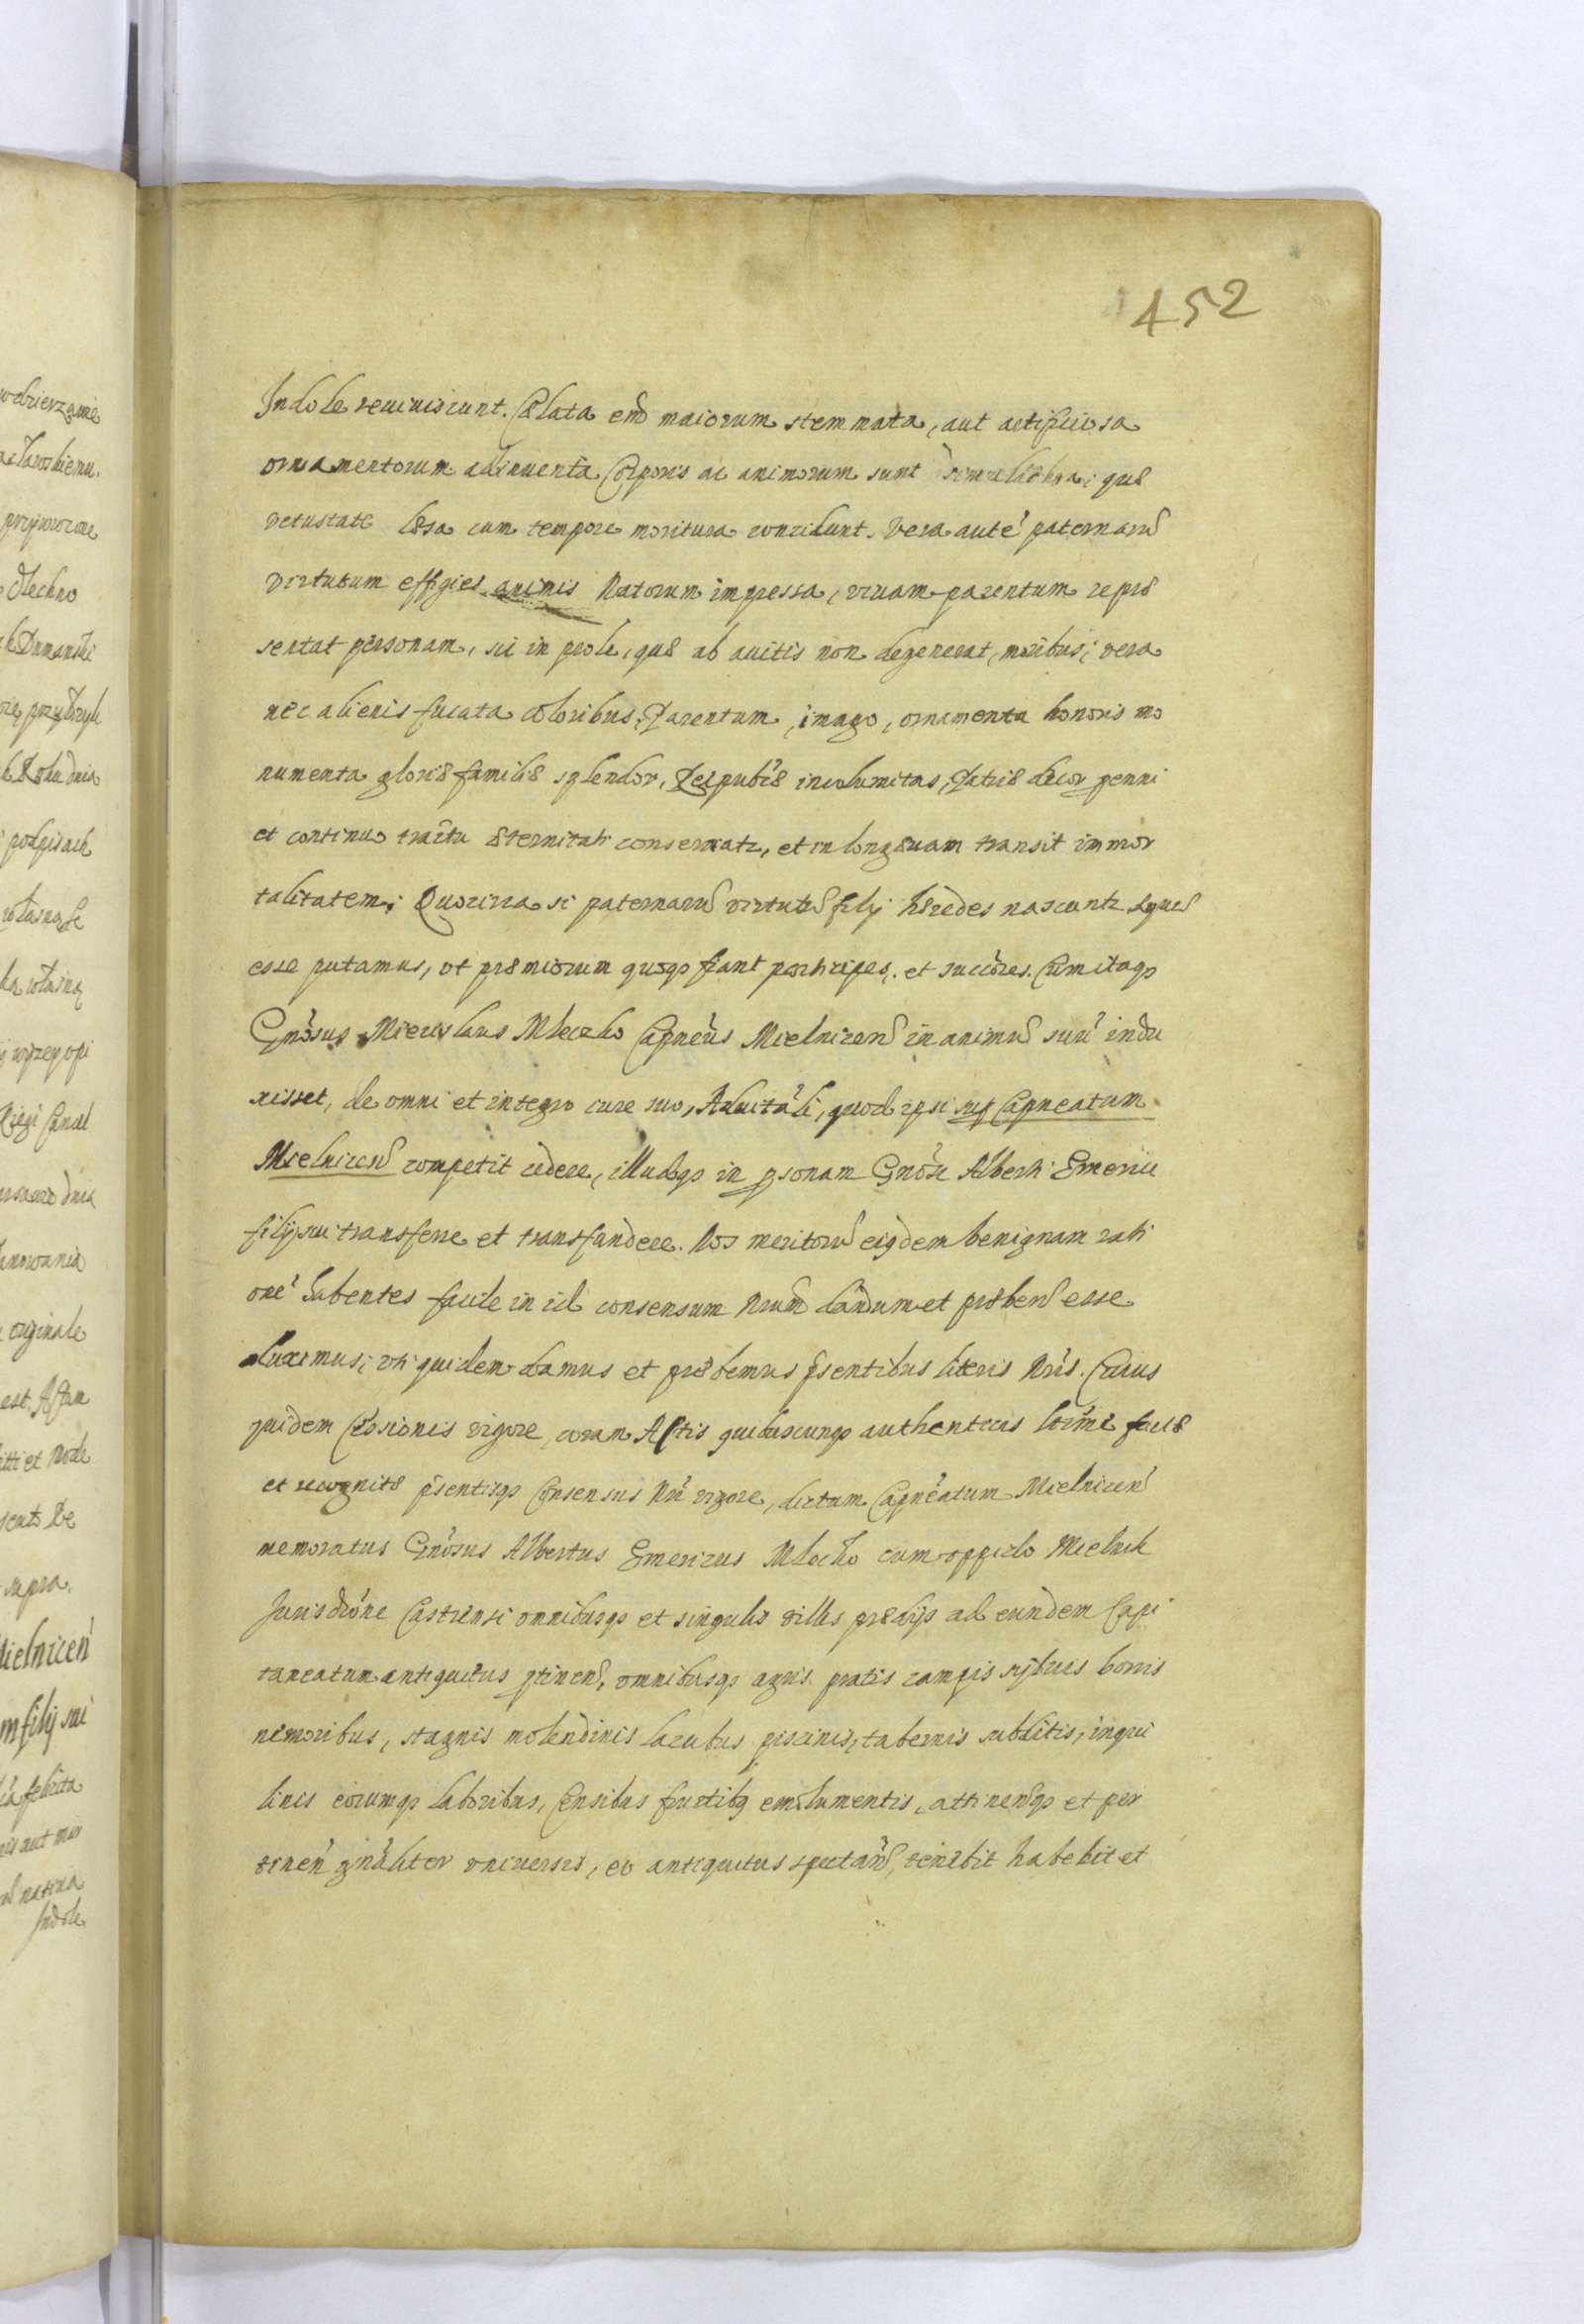 452
Indole reviviscunt. Cælata em̃ maiorum stemmata, aut artificiosa
ornamentorum adinventa Corporis ac animorum sunt simulachra; quæ
vetustate læsa cum tempore moritura concidunt. Vera autẽ paternarũ
virtutum effigies animis Natorum impressa, vivam parentum repræ
sentat personam, sic in prole, quæ ab avitis non degenerat, moribus; vera
nec alienis fucata coloribus, Parentum, imago, ornamenta honoris mo
numenta gloriæ familiæ splendor, Reipubcæ incolumitas, Patriæ decor penni
et continuo tractu æternitati conservatr, et in longævam transit immor
talitatem; Quocirca si paternarũ virtutũ filij hæredes nascuntr æquũ
esse putamus, vt præmiorum quoqȝ fiant participes, et succores. Cum itaqȝ
Gnõsus Miecislaus Mleczko Capneus Mielnicen̄ in animũ suũ indu
xisset, de omni et integro iure suo, Advitãli, quod ipsi sup Capneatum
Mielnicen̄ competit cedere, illudqȝ in psonam Gnõsi Alberti Emerici
filij sui transferre et transfundere. Nos meritorũ eiqdem benignam rati
onẽ habentes facile in id consensum Nrum̃ dandum et præbend̃ esse
duximus; vti quidem damus et præbemus p̃sentibus literis Nrĩs. Cuius
quidem Cessionis vigore, coram Actis quibuscunqȝ authenticis ltime factæ
et recognitæ p̃sentisqȝ Consensus Nrĩ vigore, dictum Capneatum Mielnicen̄
memoratus Gnõsus Albertus Emericus Mleczko cum oppido Mielnik
Jurisdione Castrensi omnibusqȝ et singulis villis prædijs ad eundem Capi
taneatum antiquitus ptinen̄, omnibusqȝ agris pratis campis sylvis borris
nemoribus, stagnis molendinis lacubus piscinis, tabernis subditis, inqui
linis eorumqȝ laboribus, Censibus fructibq emolumentis, attinen̄qȝ et per
tinen̄ gnãliter vniversis, eo antiquitus spectan̄, tenebit habebit et